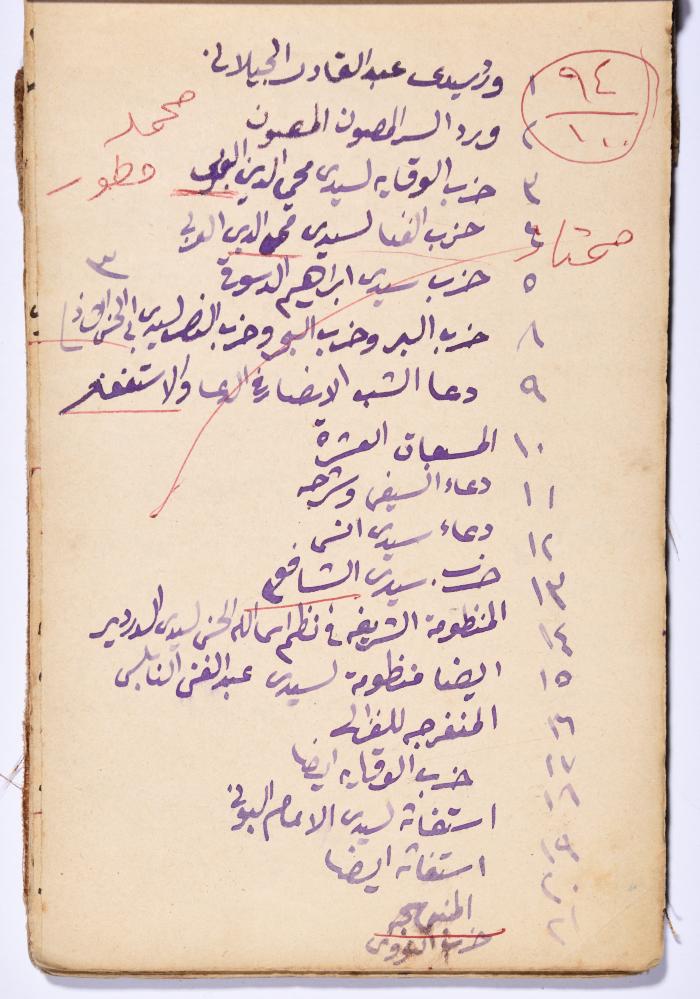 ٩٤
١٠٠
١ ورد سيدى عبد القادر الجيلانى
محمد
٢ ورد السر المصون المصون
٣ حزب الوقايه لسيدى محي الدين العربى
٤ حزب الفنا لسيدى محي الدين العربى
٥ حزب سيدى ابراهيم الدسوقى
٣
٨ حزب البر وحزب البحر وحزب النصر لسيدى ابى الحسن الشاذلى
٩ دعا الشب الايضا فى الدعا والاستغفار
١٠ المسبعات العشرة
١١ دعاء السيفى وشرحه
١٢ دعاء سيدى انس
١٣ حزب سيدى الشافعى
١٤ المنظومة الشريفه فى نظم اسما الله الحسنى لسيدى الدردير
١٥ ايضا منظومة لسيدى عبد الغنى النابلسى
١٦ المنفرجه للغزالى
١٧ حزب الوقايه ايضا
١٨ استغاثه لسيدى الامام البونى
١٩ استغاثه ايضا
٢٠ المنبهجه
٢١ حزب النووى